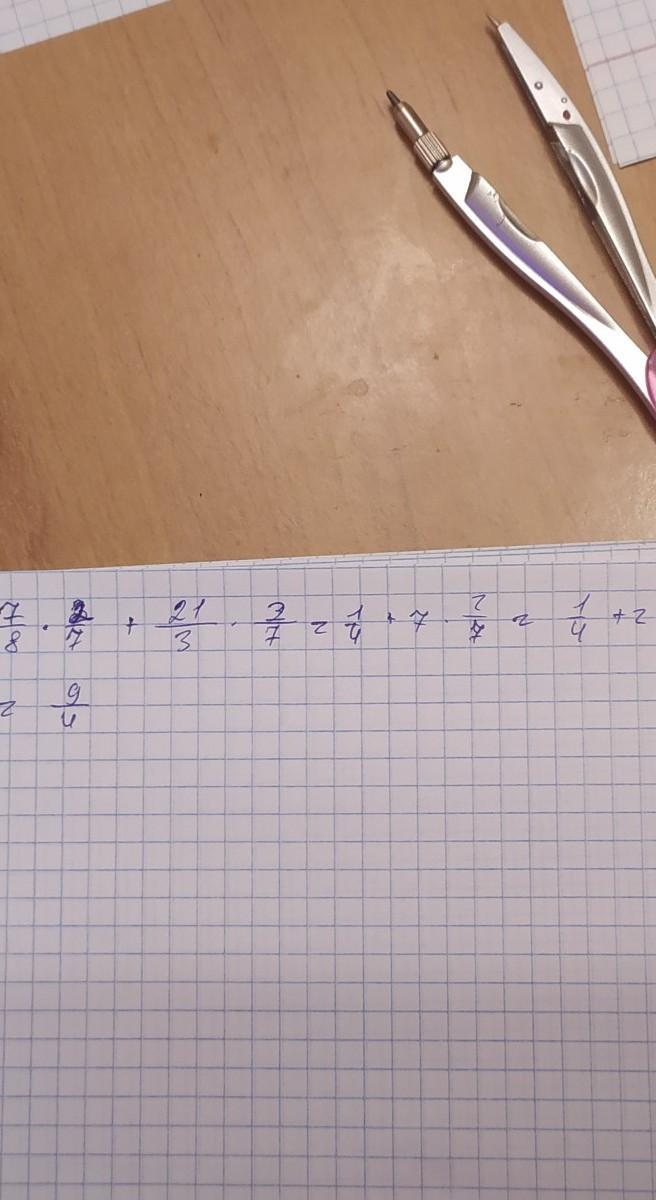 7/8 · 2/7 + 21/3 · 2/7 = 1/4 + 7 · 2/7 = 1/4 + 2
= 9/4